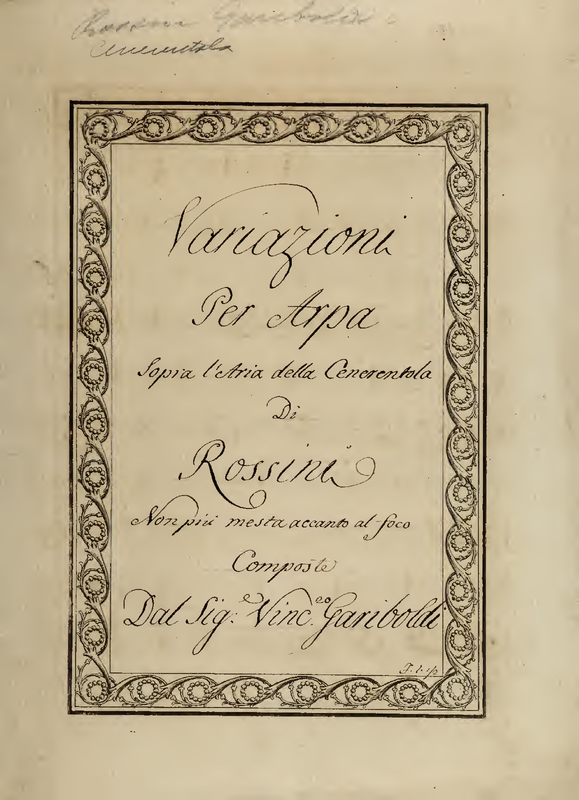 Rossini Gariboldi
Cenerentola
Variazioni
Per Arpa
Sopra l'Aria della Cenerentola
Di
Rossini
Non più mesta accanto al foco
Composte
Dal Sig.e Vinc.eo Gariboldi